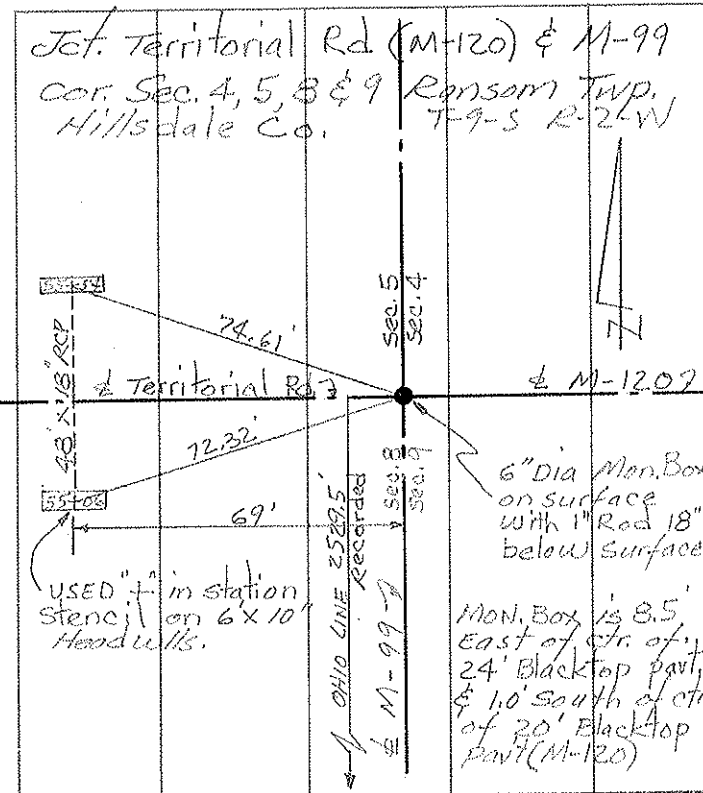 Jct. Territorial Rd. (M-120) & M-99
Cor. Sec. 4, 5, 8 & 9 Ransom Twp.
Hillsdale Co. T-9-S R-2-W
N
Sec. 5
Sec. 4
74.61'
48' X 18" RCP
℄ Territorial Rd.
℄ M-120
72.32'
55+05
69'
Sec. 8
Sec. 9
6" Dia Mon. Box
on surface
with 1" Rod 18"
below surface
USED "+" in station
stencil on 6' X 10"
Headwlls.
OHIO LINE 2529.5'
Recorded
℄ M-99
Mon. Box is 8.5'
East of ctr. of
24' Blacktop pavt.
& 1.0' South of ctr
of 20' Blacktop
pavt (M-120)